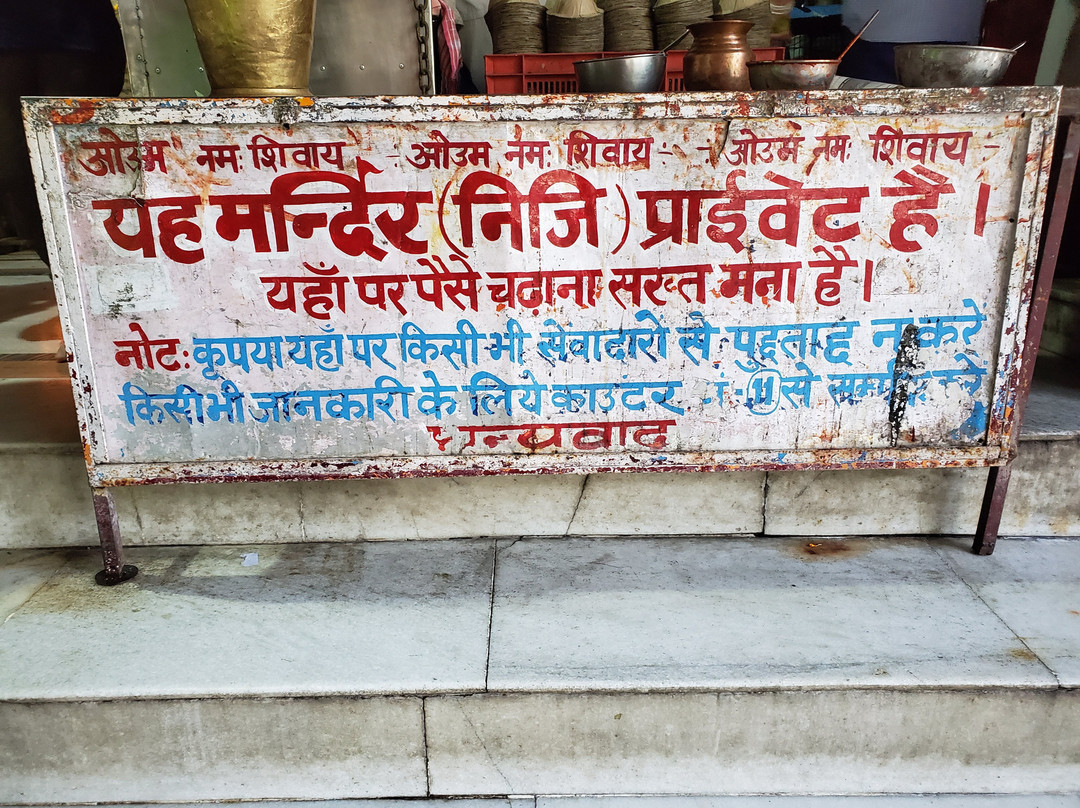 ओउम नमः शिवाय - औउम नमः शिवाय - ओउम नमः शिवाय -
यह मन्दिर (निजि) प्राईवेट है ।
यहाँ पर पैसे चढ़ाना सख्त मना है।
नोट: कृपया यहाँ पर किसी भी सेवादारो से पुछताछ न करे
किसी भी जानकारी के लिये काउंटर 11 से सम्पर्क करें
धन्यवाद